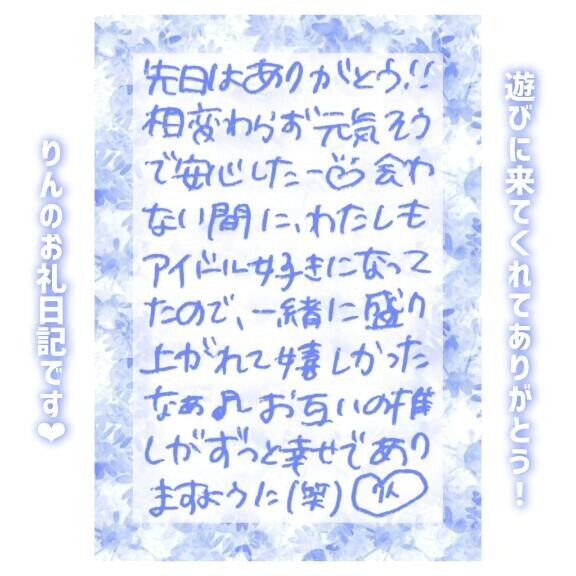 遊びに来てくれてありがとう!
先日はありがとう!!
相変わらず元気そう
で安心したー♡会わ
ない間に、わたしも
アイドル好きになって
たので、一緒に盛り
上がれて嬉しかった
なぁ♪お互いの推
しがずっと幸せであり
ますように(笑)
りん
りんのお礼日記です❤